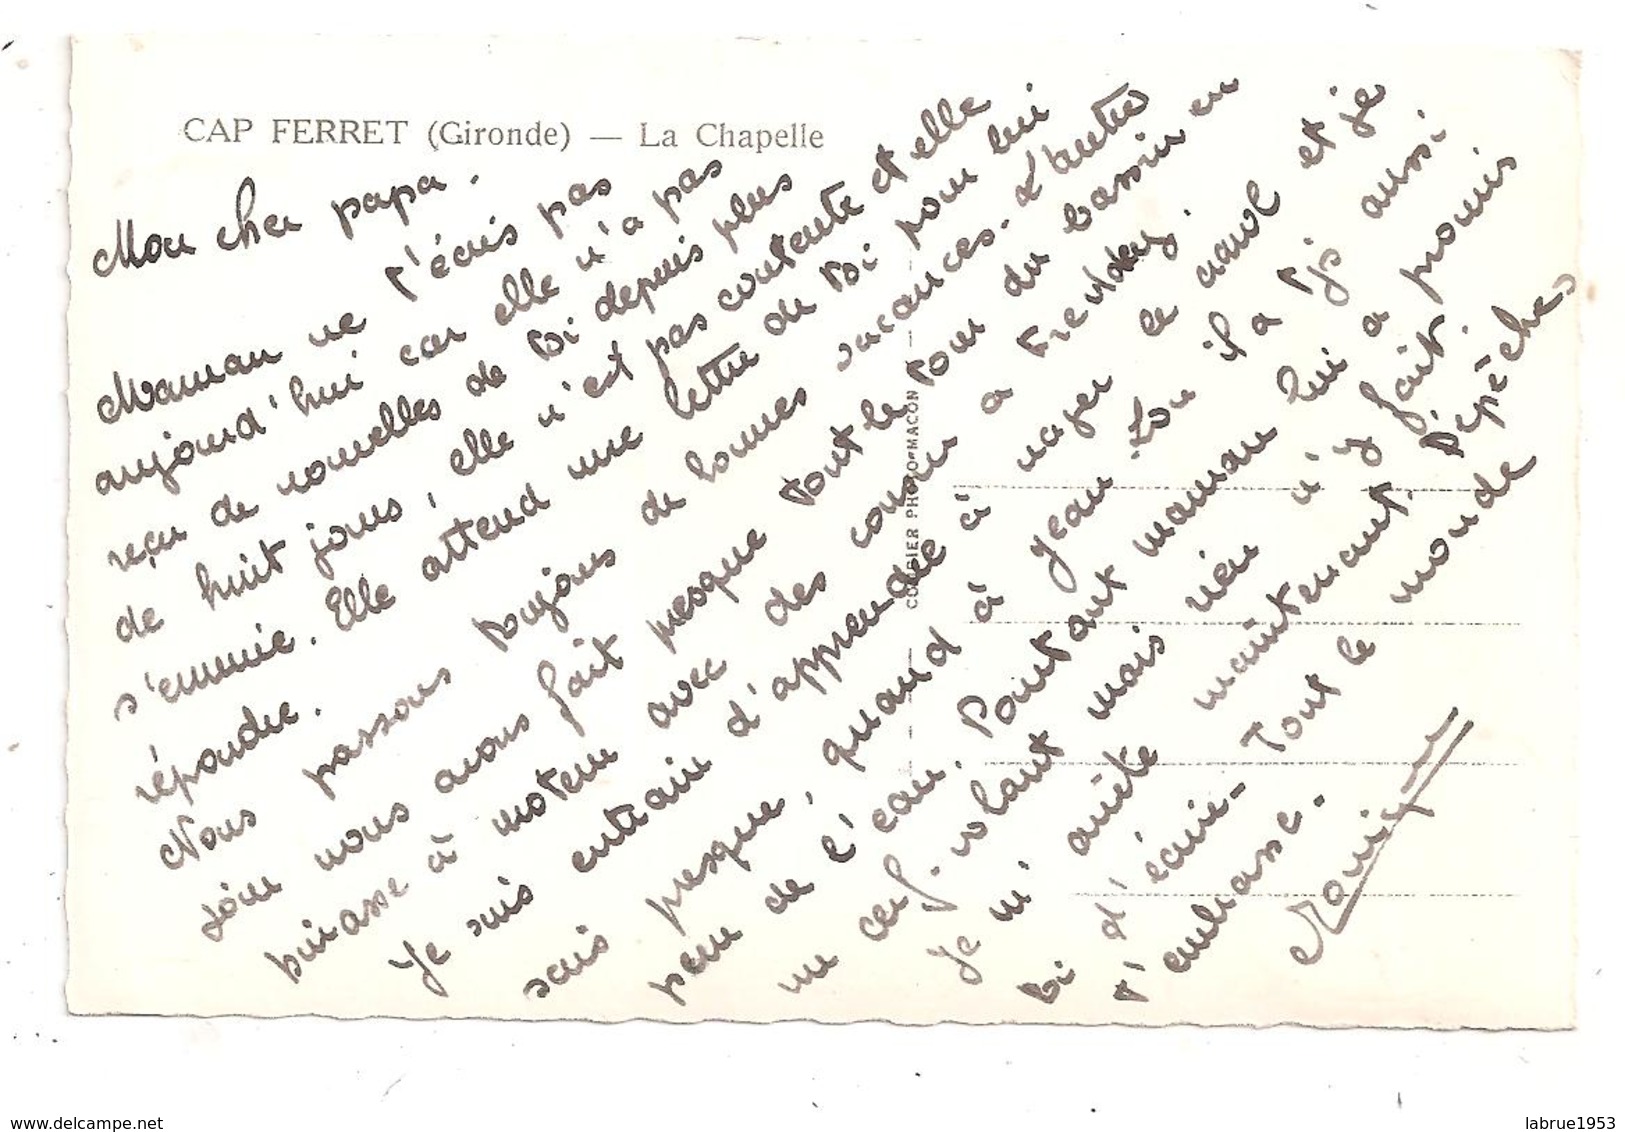 CAP FERRET (Gironde) — La Chapelle
Mon cher papa.
Maman ne t'écris pas
aujourd'hui car elle n'a pas
reçu de nouvelles de toi depuis plus
de huit jours, elle n'est pas contente et elle
s'ennuie. Elle attend une lettre de toi pour lui
répondre.
Nous passons toujours de bonnes vacances. L'autre
jour nous avons fait presque tout le tour du bassin en
pinasse à moteur avec des cousins a
Je suis entrain d'apprendre à nager le crawl et je
sais presque, quand à Jean-Lou il a tjs aussi
peur de l'eau. Pourtant maman lui a promis
un cerf-volant mais rien n'y fait.
Je m'arrête maintenant. Dépêches
toi d'écrire - Tout le monde
t'embrasse -
COMBIER PHOTO-MACON
www.delcampe.net
labrue1953